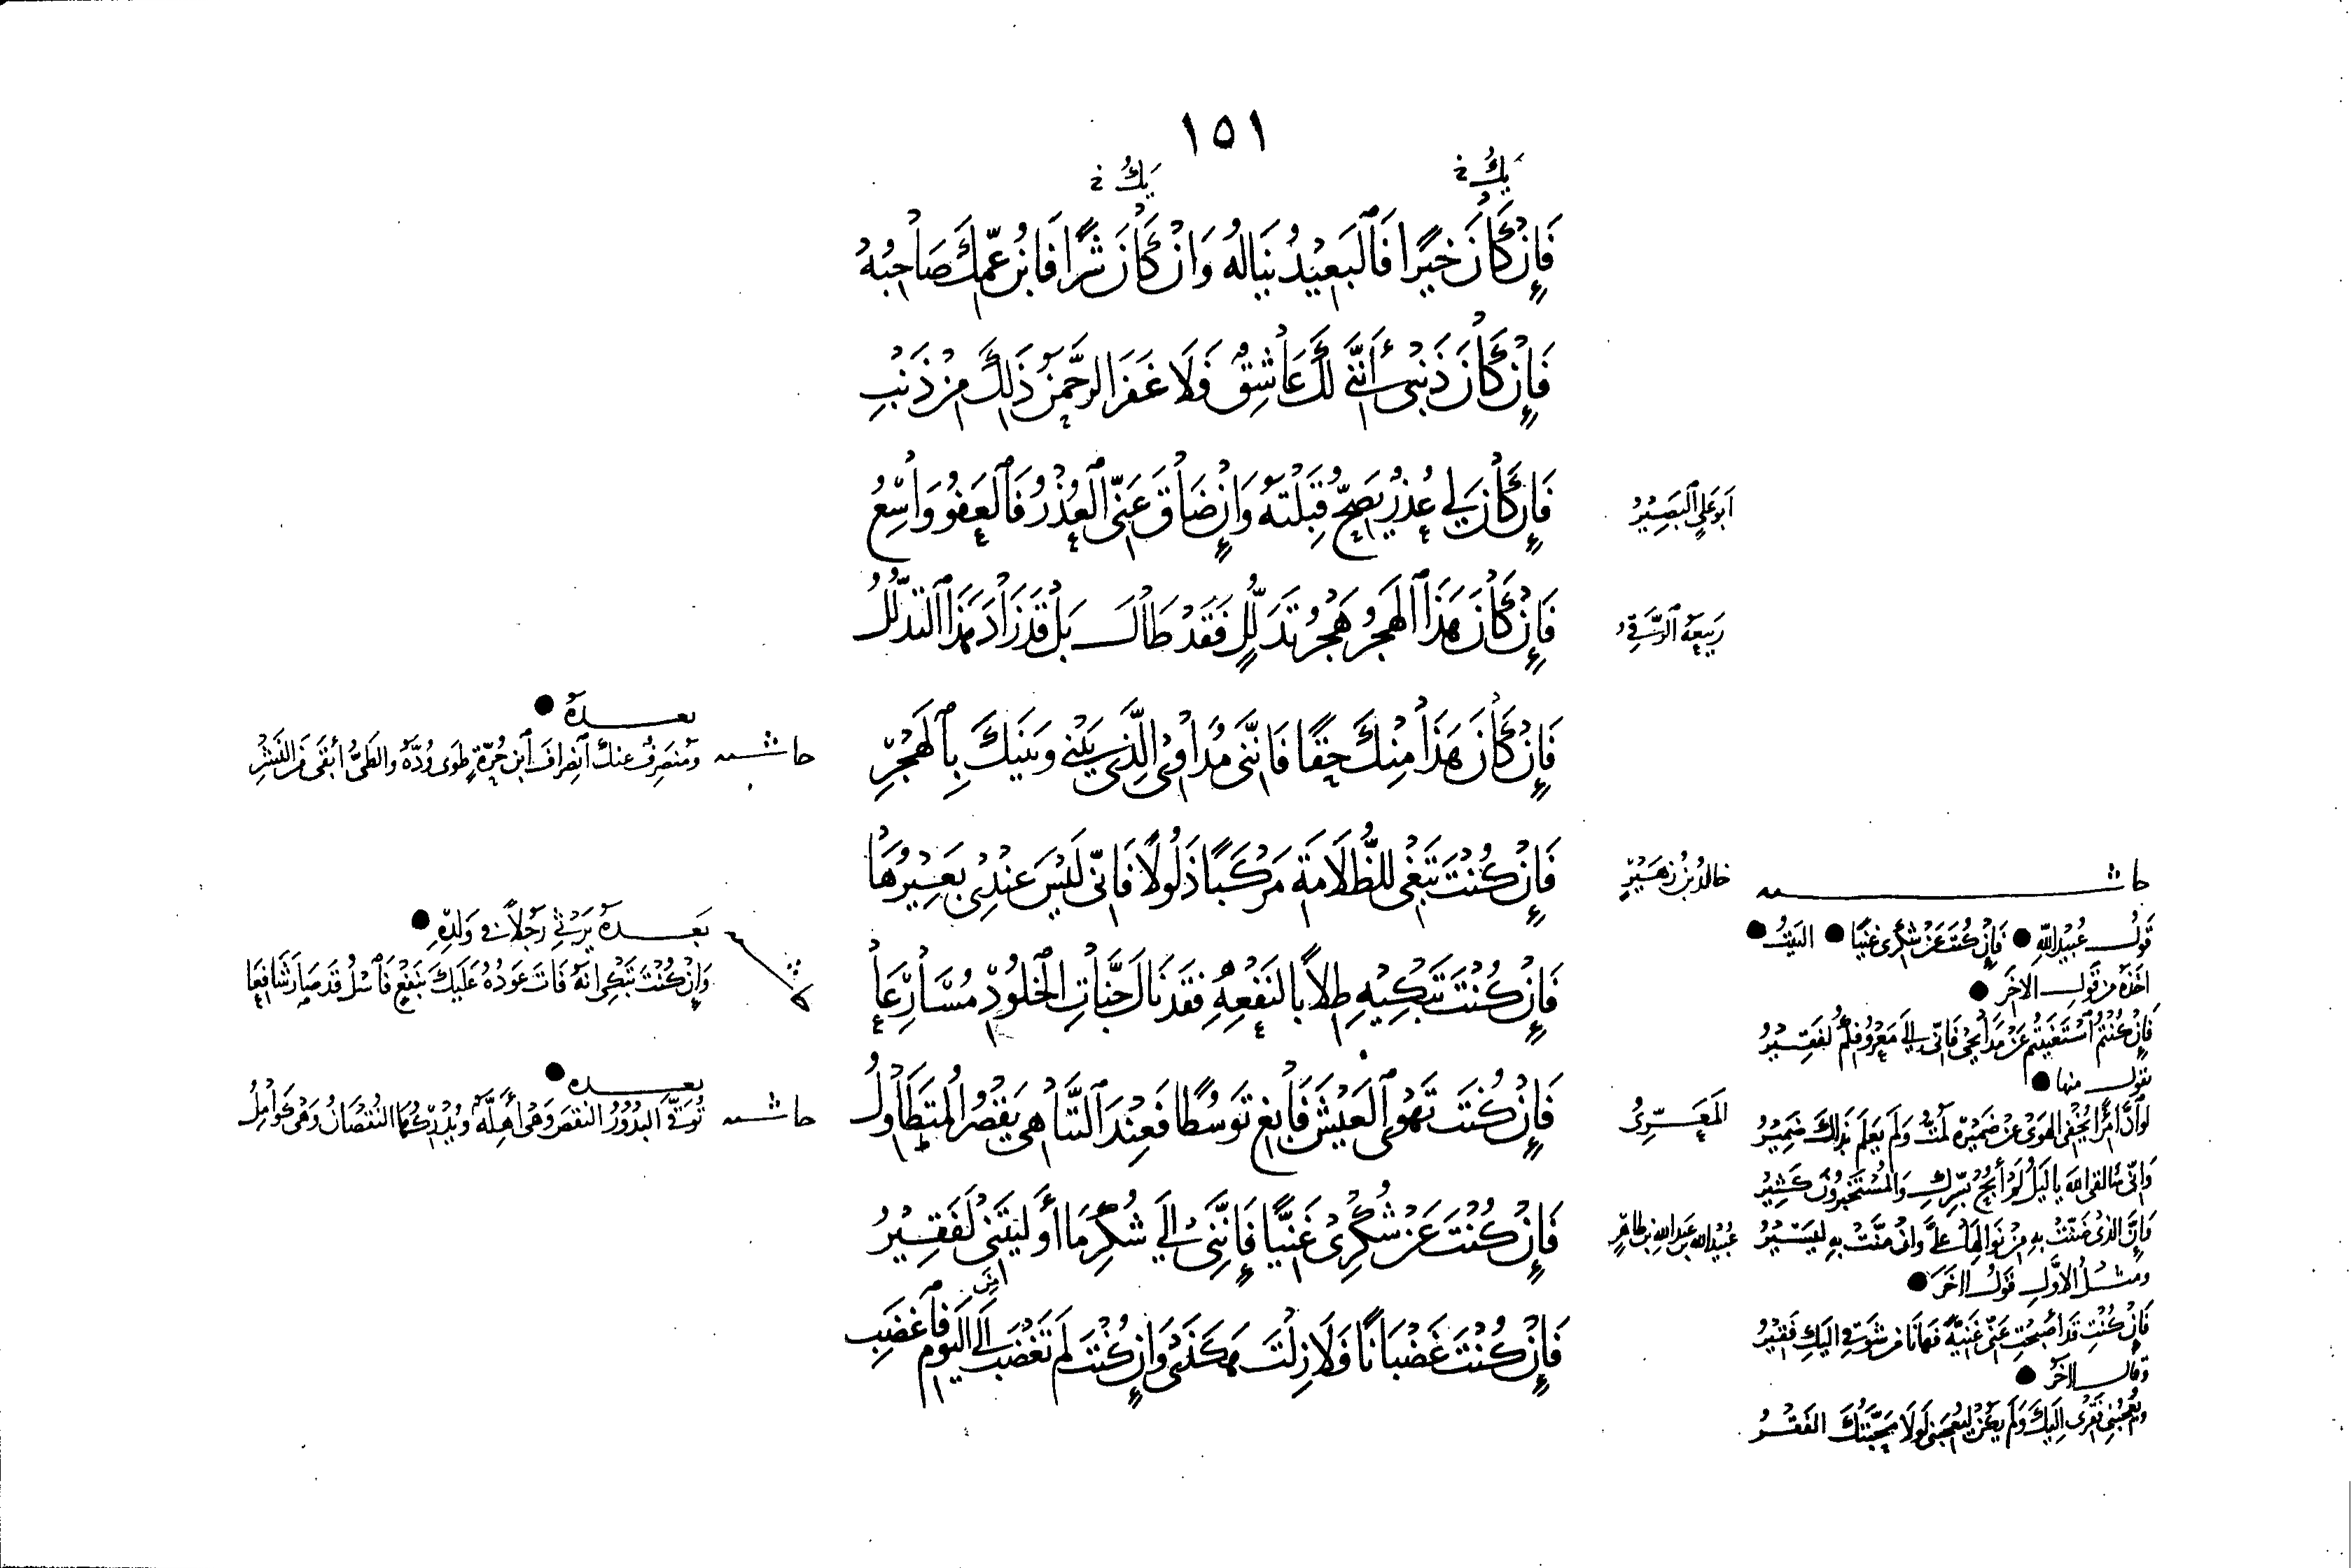 ١٥١
يَكُ خ
يَكُ خ
فَإِنْ كَانَ خَيْرًا فَالْبَعِيْدُ يَنَالُهُ وَانْ كَانَ شَرًّا فَابْنُ عَمِّكَ صَاحِبُهُ
فَإِنْ كَانَ ذَنْبِى أَنَّنِى لَكَ عَاشِقٌ فَلَا غَفَرَ الرَّحْمَنُ ذَلِكَ مِنْ ذَنْبِ
أبُو عَلىٍ الْبَصِيْرُ
فَإِنْ كَانَ لِي عُذْرٌ يَصِحُّ قَبِلْتَهُ وَإِنْ ضَاقَ عَنِّى الْعُذْرُ فَالْعَفْوُ وَاسِعُ
رَبيعَة الرَّقِّيُّ
فَإِنْ كَانَ هَذَا الْهَجْرُ هَجْرُ تَدَلُّلٍ فَقَدْ طَالَ بَلْ قَدْ زَادَ هَذَا التَّدَلُّلُ
فَإِنْ كَانَ هَذَا مِنْكَ حَقًا فَانَّنِى مُدَاوِى الَّذِى بَيْنِى وَبَيْنِكَ بِالْهَجْرِ
حاشـــيه
بعـــده
ومُنصَرِفٌ عنكَ اْنصِرافَ ابْن حُرّةٍ طَوى وُدَّهُ والطىُّ أَبْقَى مِنَ النَشْرِ
خالدُ بنُ زُهَيْرٍ
فَإِنْ كُنْتَ تَبْغِى لِلظُّلَامَةِ مَرْكَبًا ذَلُولًا فَانِّى لَيْسَ عِنْدِى بَعِيْرُهَا
فَإِنْ كُنْتَ تَبْكِيْهِ طِلَابًا لنَفْعِهِ فقَد نَالَ جَنَّاتِ الْخُلُوْدِ مُسَارِعَا
بَعـــدهُ يَرْثِي رَجُلًا فِي وَلَدِهِ
وَإِنْ كُنْتَ تَبْكِى انّهُ فَاتَ عَوْدُهُ عَلَيْكَ بنَفْعٍ فَاسْلُ قَد صَارَ شَافِعَا
الْمَعَـــرِّىُّ
فَإِنْ كُنْتَ تَهْوَى الْعَيْشَ فَابْغِ تَوَسُّطًا فَعِنْدَ التَّنَاهِى يَقْصُرُ الْمُتَطَاوِلُ
حاشـــيه
بعـــده
تُوَقَّى البُدُوْرُ النَقصَ وَهْىَ أَهِلَّةٌ ويُدْرِكُهَا النُقْصَانُ وَهْىَ كَوَامِلُ
عُبَيْدُ الله بن عَبدِ اللهِ بن طَاهِرٍ
فَإِنْ كُنْتَ عَنْ شُكْرِى غَنِيًّا فَإِنَّنِى الَى شُكْرِ مَا أَوْلَيْتَنِى لَفَقِـيْرُ
فَإِنْ كُنْتَ غَضْبَانًا فَلَا زِلْتَ هَكَذَى وَإِنْ كُنْتَ لَم تَغْضَبْ الى اليَوْم فَاغضَبِ
حاشـــــيه
قَولُ عُبَيْدِ اللهِ فَإِنْ كُنْتَ عَنْ شُكْرِى غَنِيًّا البَيْتُ
اخَذَهُ مِنْ قَولِ الآخَرِ
فَإِنْ كُنْتُمُ اسْتَغنَيتُم عَنْ مَدَايِحِى فَانِّى الَى مَعْرُوفِكُم لَفَقِـيْرُ
يقُول منها
لَو أنَّ امْرًا يُخْفى الهَوى عَنْ ضَمِيْرِهِ لَمُتُّ وَلَم يَعْلَم بذَاكَ ضَمِيْرُ
وَانِّى سَالقى اللهَ يا لَيْلُ لَم أَبُحْ بسِرّكِ وَالْمُسْتَخْبِرُونَ كَثِيْرُ
ومثـــلُ الأوَّلِ قَولُ الآخَرِ
فَإِنْ كُنْتِ قَد أصْبَحْتِ عَنِّى غَنيَّةً فهَا نَا مِن شَوقِى اليَكِ فَقِيْرُ
وقال الآخَر
ويُعْجِبُنى فَقْرى اليْكَ وَلَم يَكُنْ ليُعْجِبَنى لَولَا مَحَبَّتُكَ الفَقْـــرُ